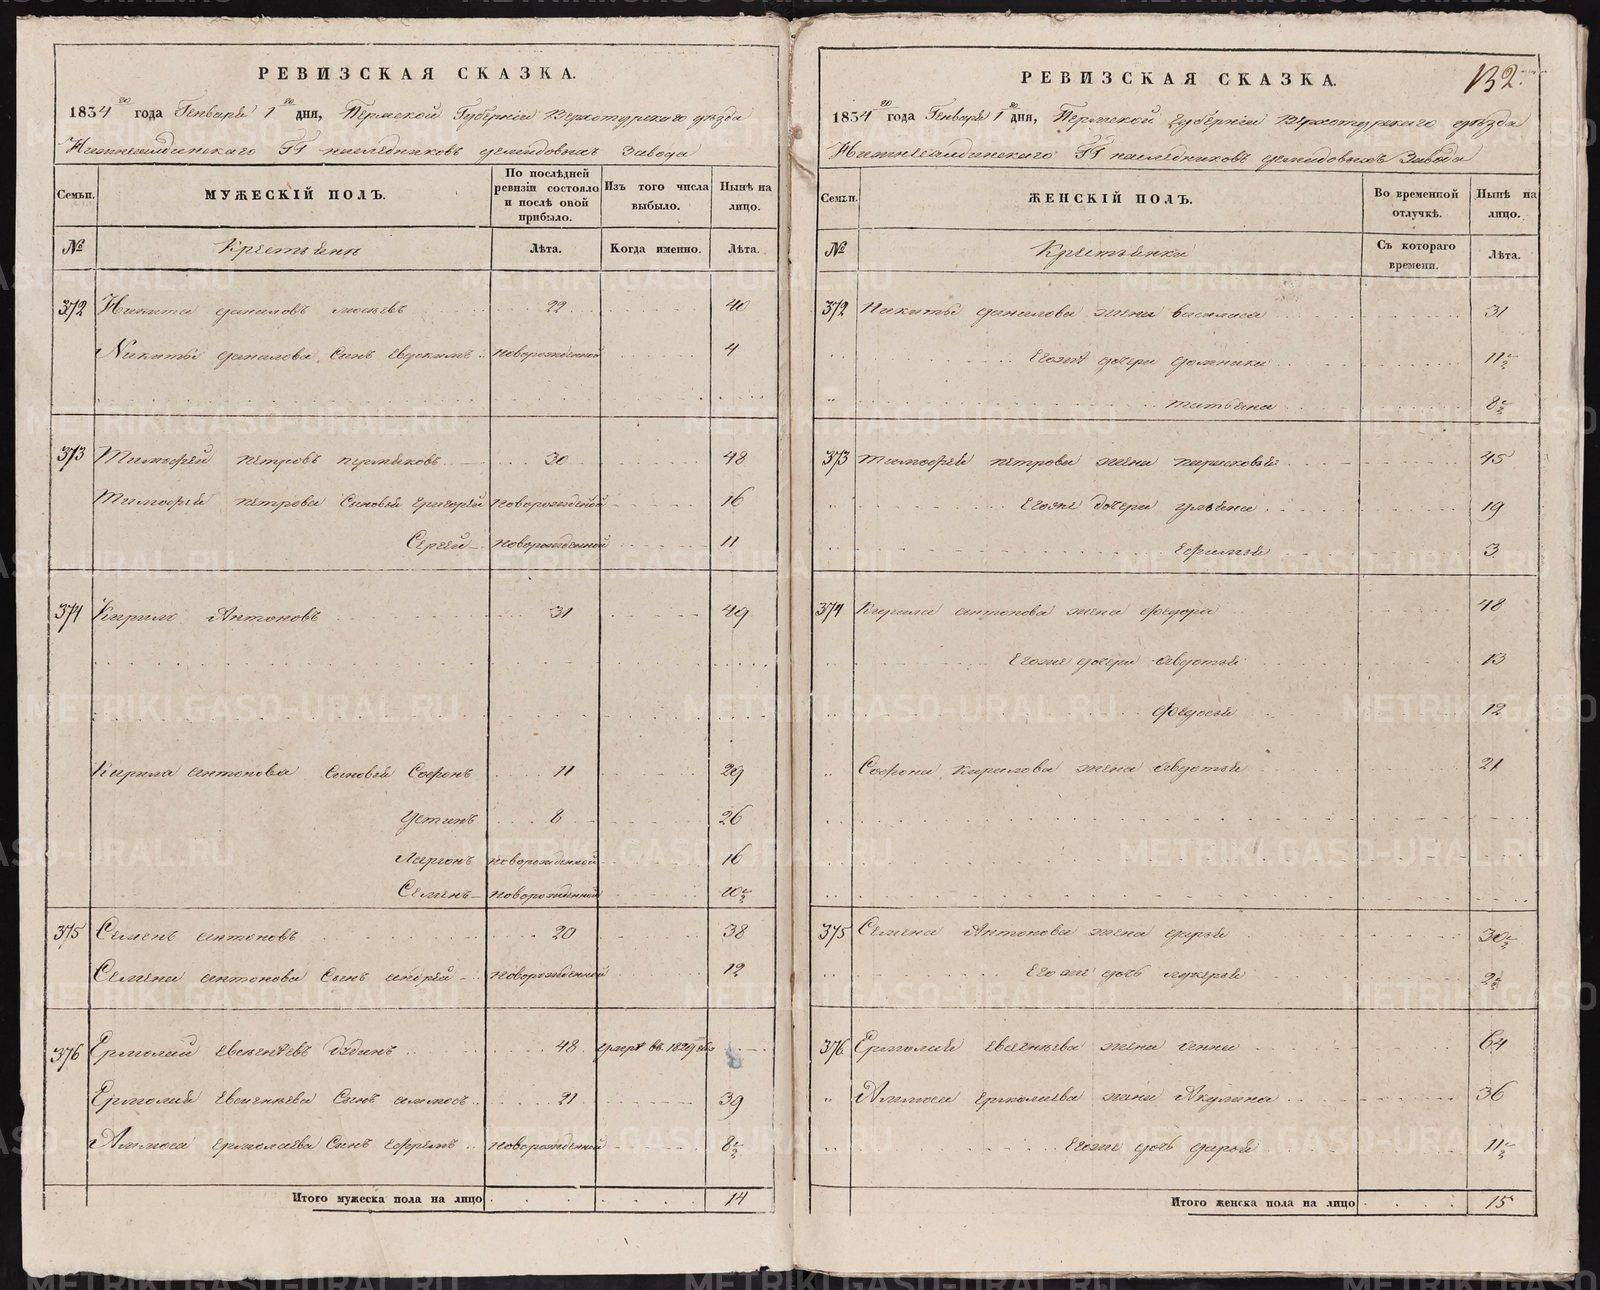 РЕВИЗСКАЯ СКАЗКА.
1834 го года Генваря 1 го дня, Пермской Губернии Верхотурскаго уезда
Нижнесалдинскаго ГГ наследниковъ демидовыхъ Завода
Семьи. МУЖЕСКІЙ ПОЛЪ. По послѣдней ревизіи состояло и послѣ оной прибыло. Изъ того числа выбыло. Нынѣ на лицо.
№ Крестьяне Лѣта. Когда именно. Лѣта.
372 Никита даниловъ 22 40
Никиты данилова Сынъ Евдокимъ новорожденной 4
373 Тимофей петровъ пермяковъ 30 48
Тимофея петрова Сыновья григорей новорожденной 16
Сергей новорожденной 11
374 Кирило Антоновъ 31 49
Кирила антонова Сыновья Софонъ 11 29
Устинъ 8 26
Ларионъ новорожденной 16
Семенъ новорожденной 10 1/2
375 Семенъ антоновъ 20 38
Семена антонова Сынъ андрей новорожденной 12
376 Ермолай Евсигнеевъ 48 умеръ въ 1829 годе
Ермолая Евсигнеева Сынъ аммосъ 21 39
Аммоса ермолаева Сынъ ефремъ новорожденной 8 1/2
Итого мужеска пола на лицо 14
132.
РЕВИЗСКАЯ СКАЗКА.
1834 го года Генваря 1 го дня, Пермской Губернии Верхотурскаго уезда
Нижнесалдинскаго ГГ наследниковъ демидовыхъ Завода
Семьи. ЖЕНСКІЙ ПОЛЪ. Во временной отлучкѣ. Нынѣ на лицо.
№ Крестьянки Съ котораго времени. Лѣта.
372 Никиты данилова жена василиса 31
Егоже дочери домника 11 1/2
татьяна 8 1/2
373 Тимофея петрова жена парасковья 45
Егоже дочери ульяна 19
Ефимья 3
374 Кирила антонова жена федора 48
Егоже дочери авдотья 13
федосья 12
Софона кирилова жена авдотья 21
375 Семена Антонова жена дарья 30 1/2
Егоже дочь лукерья 2 1/2
376 Ермолая евсигнеева жена анна 64
Аммоса ермолаева жена Акулина 36
Егоже дочь дарья 11 1/2
Итого женска пола на лицо 15
METRIKI.GASO-URAL.RU